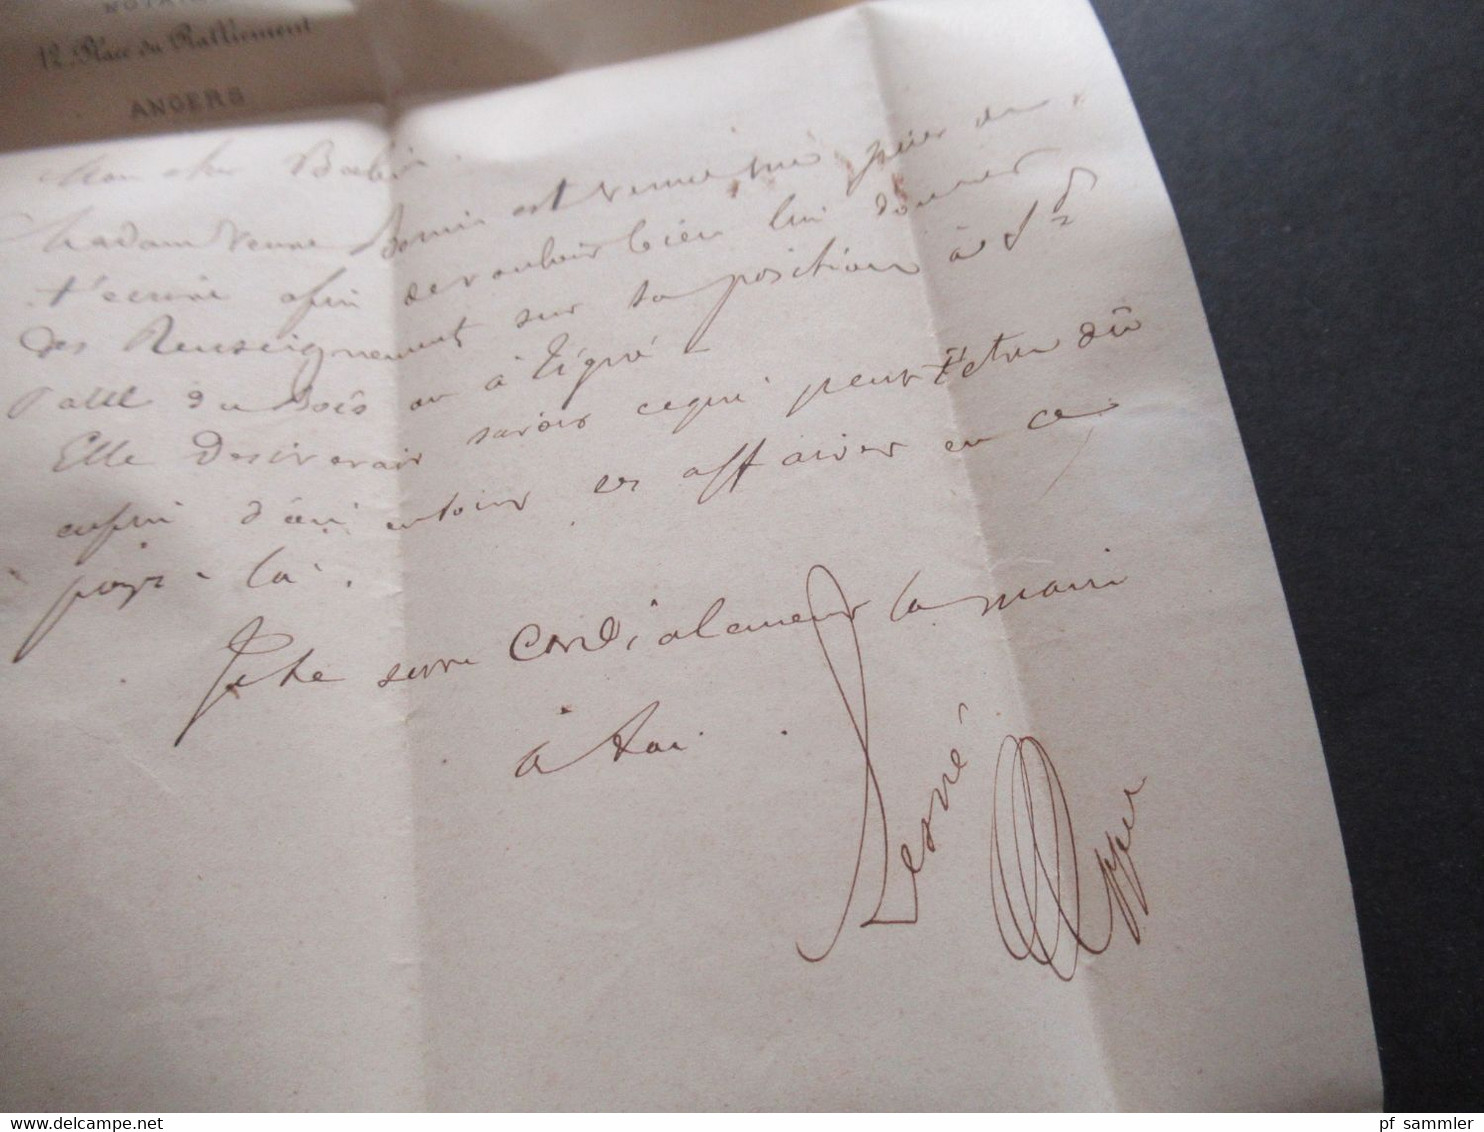 NOTAIRE
12, Place du Ralliement
ANGERS
Mon cher
Madame veuve Bonin est venue me prier de
t'écrire afin de vouloir bien lui donner
des Renseignement sur sa position à St
Paul du Bois ou à Tigné -
Elle desirerait savoir ce qui peut t'etre dû
enfin d'ou en sont les affaires en ce
pays-là.
Je te serre Cordialement la main
à toi.
Lesné